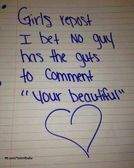 Girls repost
I bet no guy
has the guts
to comment
"your beautiful"